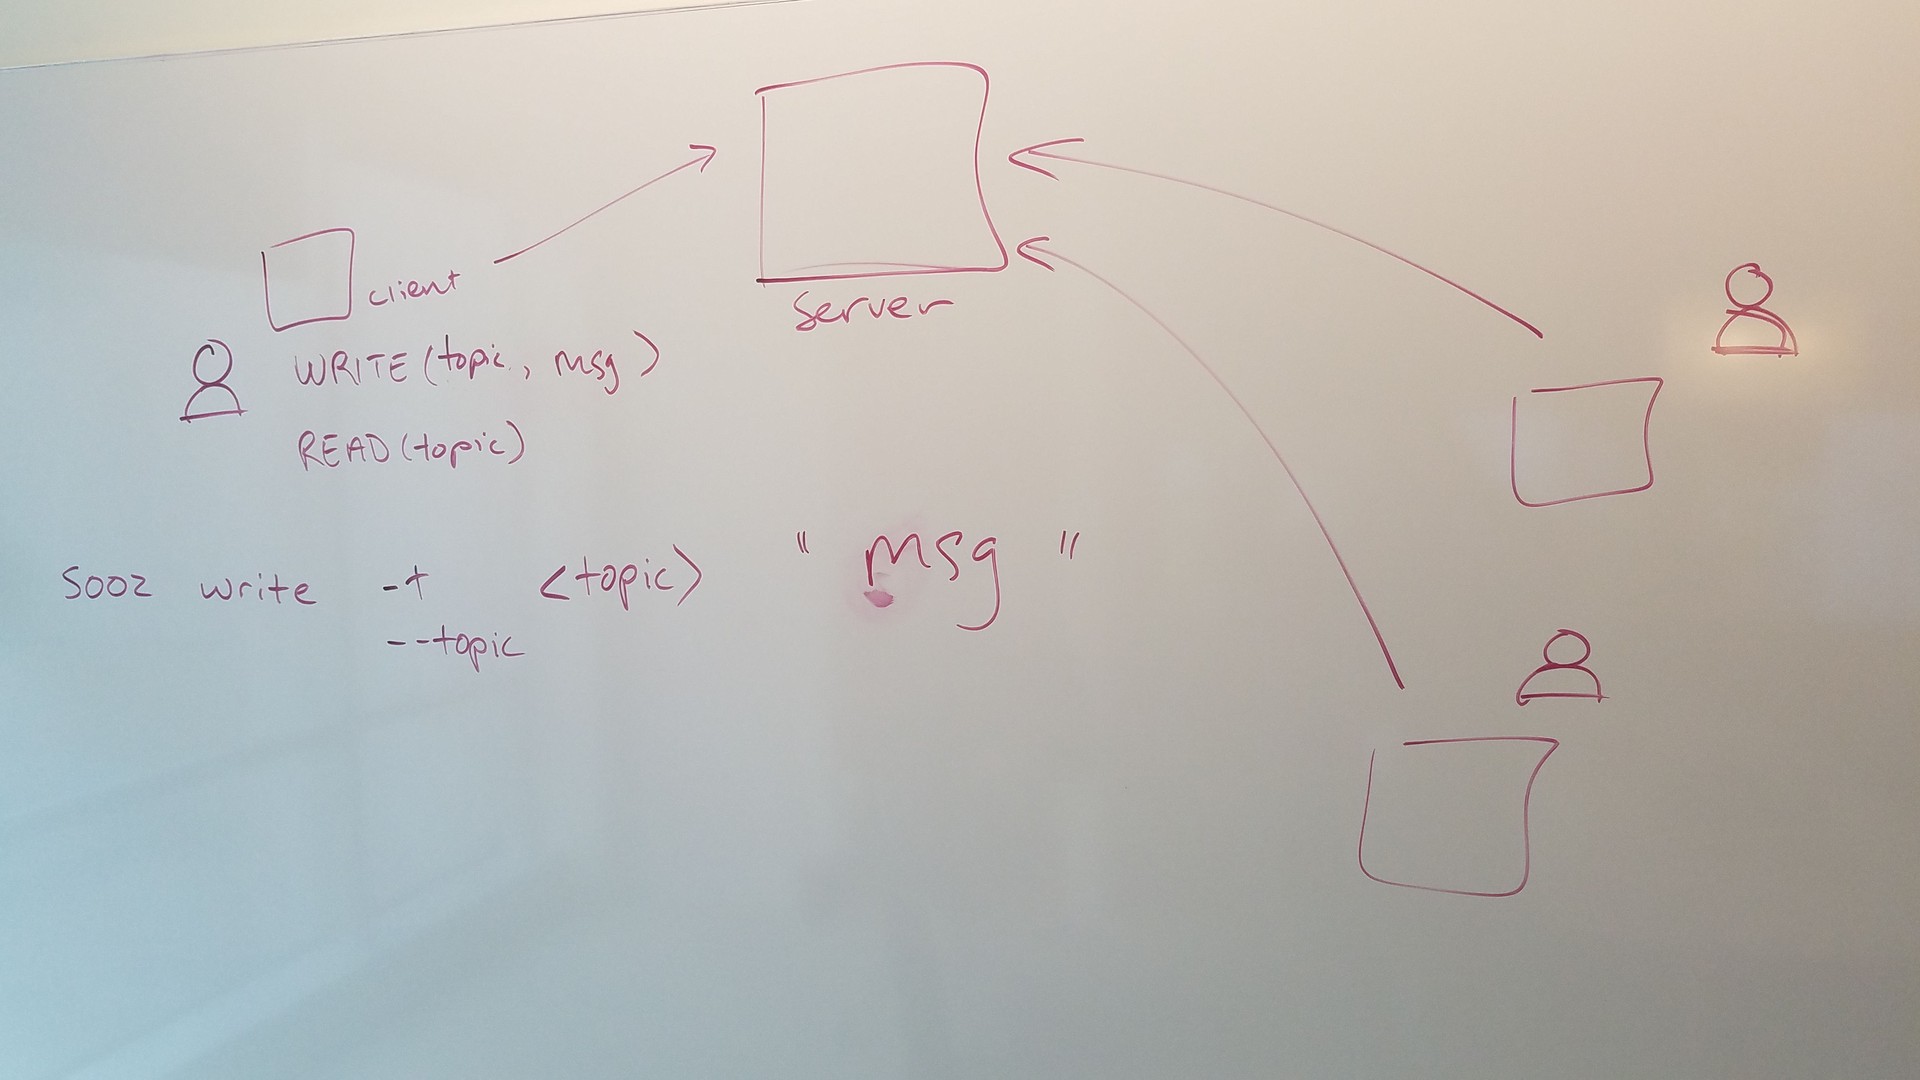 Server
client
WRITE (topic, msg)
READ (topic)
sooz write -t <topic> "msg"
--topic